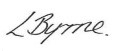 L Byrne.